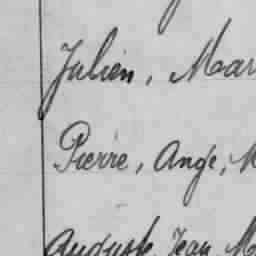 Julien, Mar
Pierre, Ange, M
Auguste, Jean, M